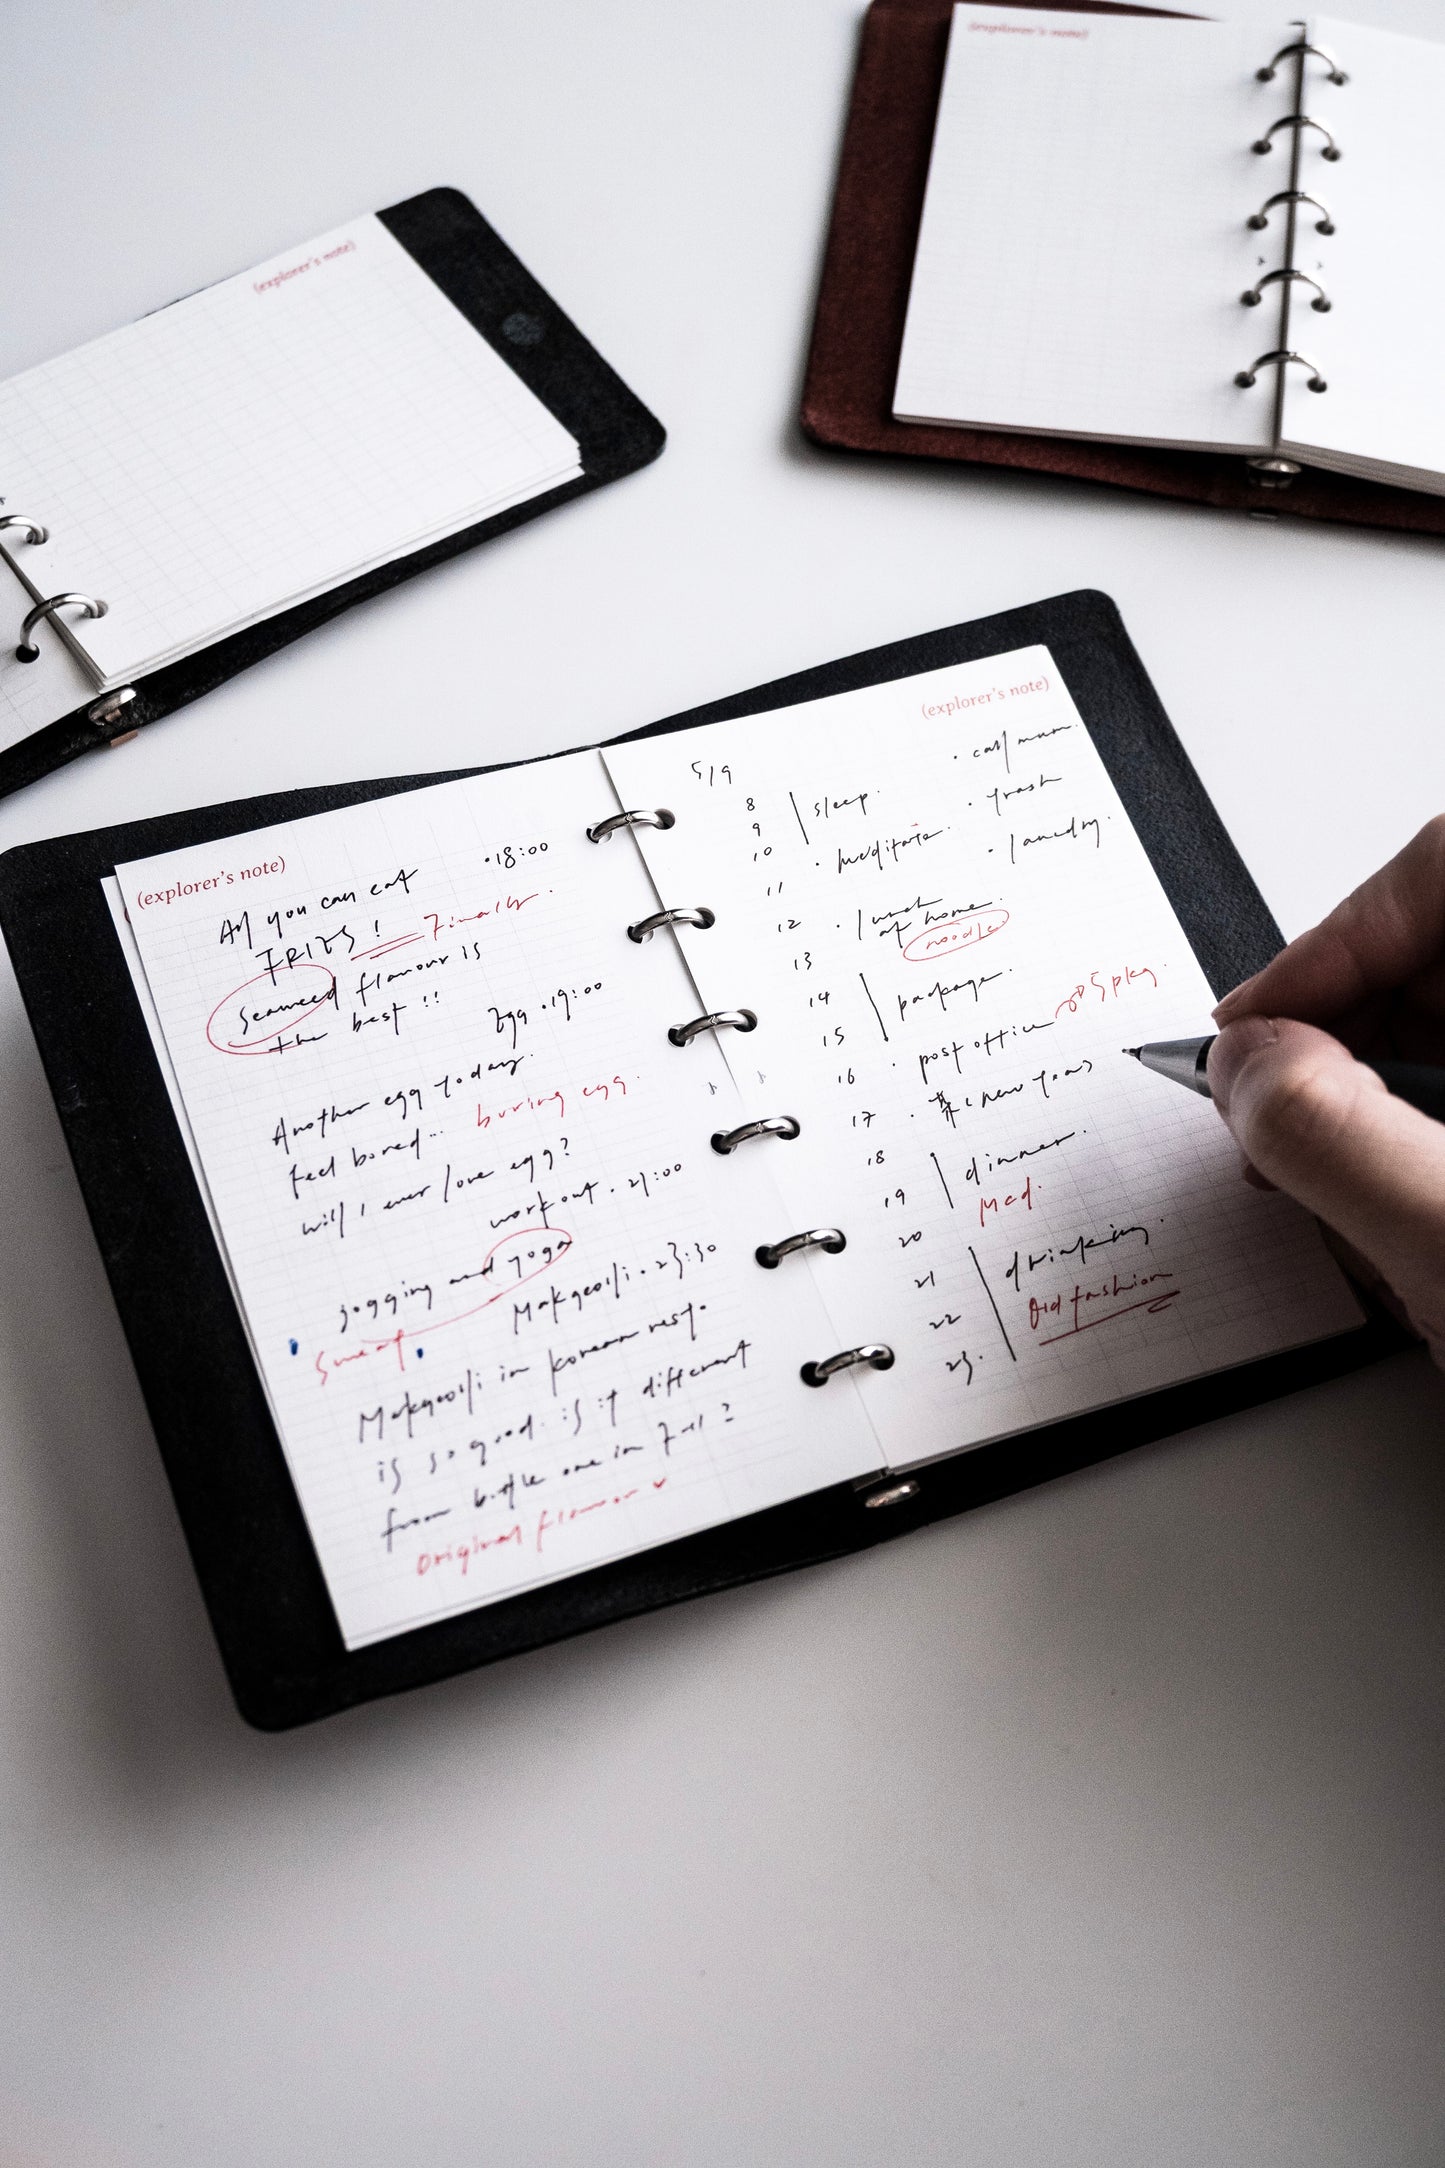 (explorer's note)
(explorer's note)
(explorer's note)
All you can eat ·18:00
FRIES! Finally.
Seaweed flavour is
the best!!
Egg ·19:00
Another egg today.
feel bored... boring egg.
will I ever love egg?
workout · 21:00
jogging and yoga
sweat.
Makgeolli · 23:30
Makgeolli in korean rest.
is so good. is it different
from bottle one in 7-11?
Original flavour
(explorer's note)
5/9
· call mum.
8
sleep.
· trash
9
10 · meditate.
· laundry.
11
12 · lunch
at home.
noodle
13
14 package.
15
16 · post office 5 pkg.
17 · new years
18
19 dinner.
20 Mcd.
21 drinking.
22 Old fashion
23.